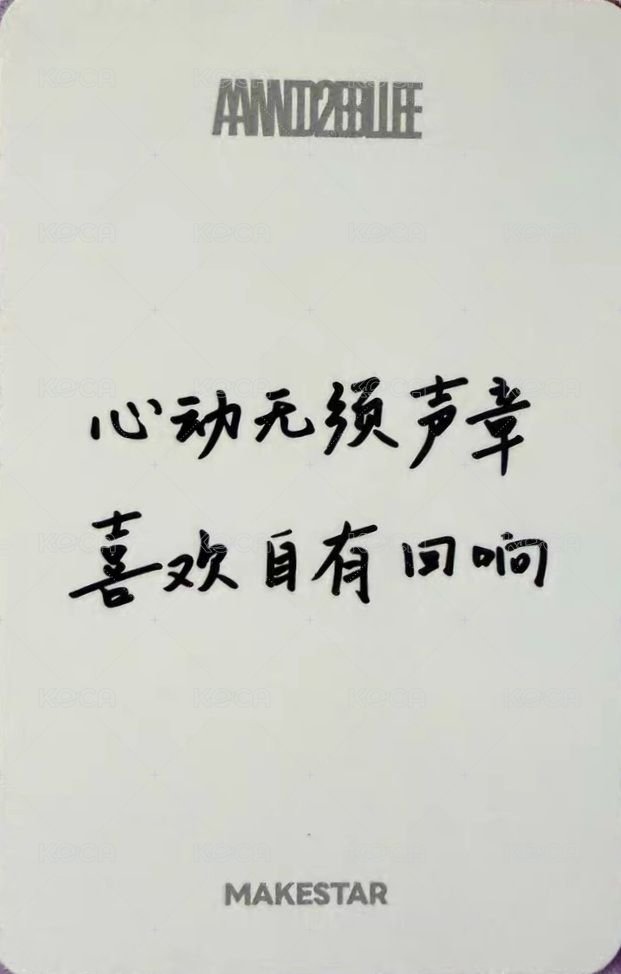 AND2BLE
心动无须声章
喜欢自有回响
MAKESTAR
KOCA